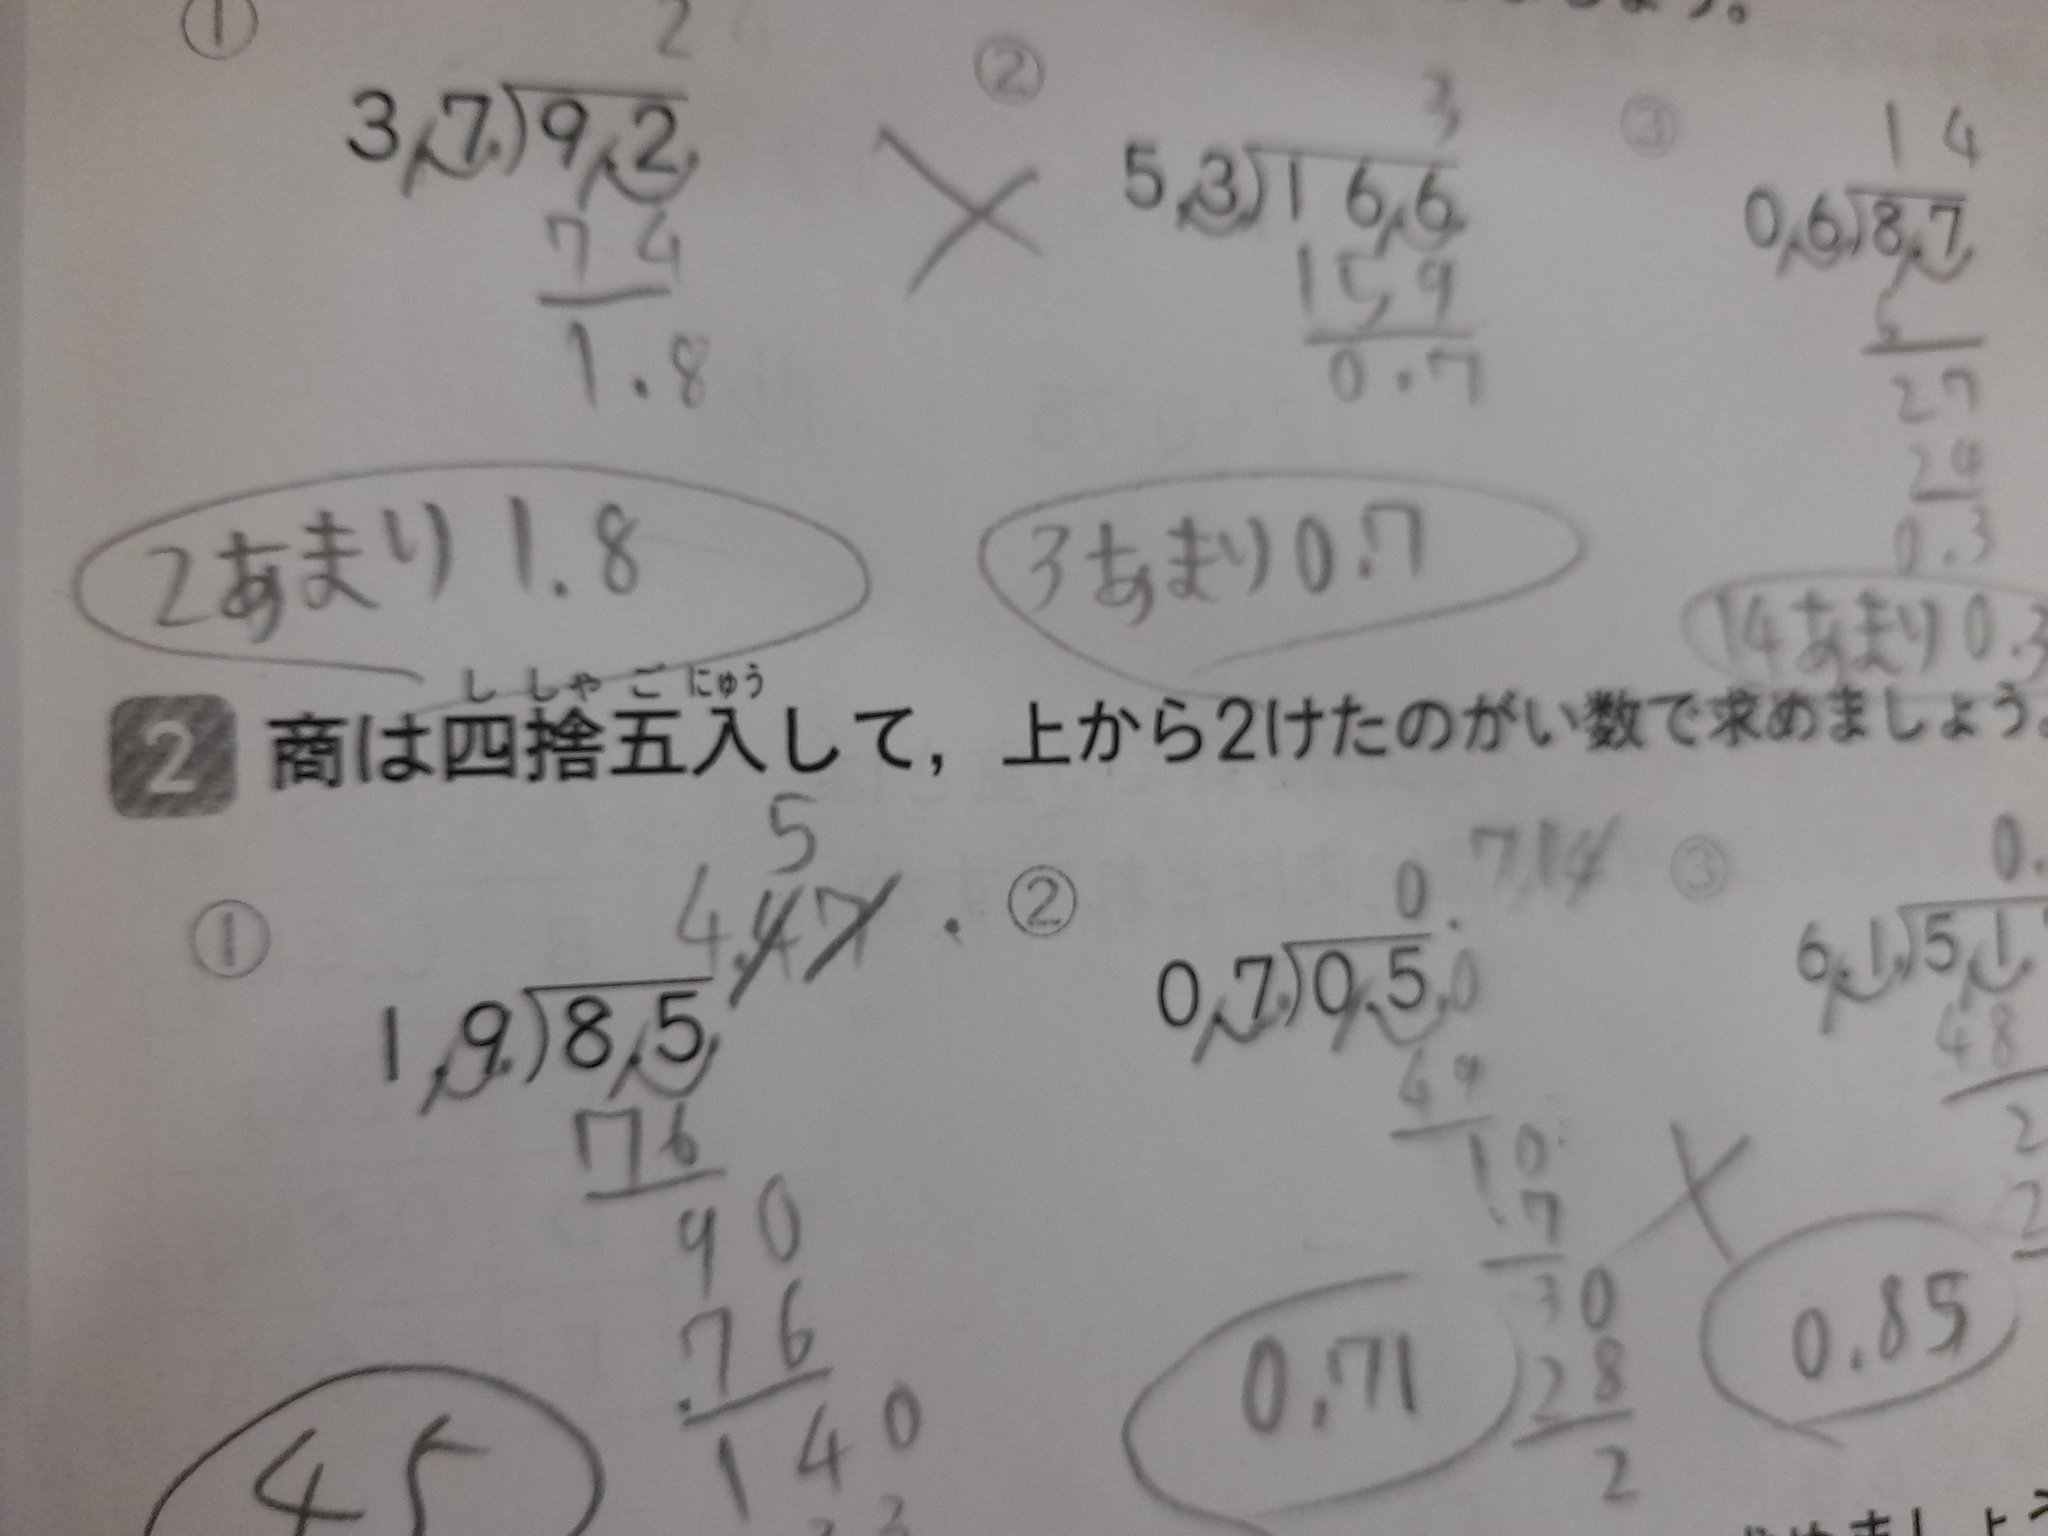 ①
2
3.7)9.2
74
1.8
2あまり1.8
②
3
5.3)16.6
159
0.7
3あまり0.7
③
14
0.6)8.7
6
27
24
0.3
14あまり0.3
ししゃごにゅう
2 商は四捨五入して，上から2けたのがい数で求めましょう。
①
5
4.47
1.9)8.5
76
90
76
140
45
②
0.714
0.7)0.5.0
49
10
7
30
28
2
0.71
③
0.
6.1)5.1
48
2
2
0.85